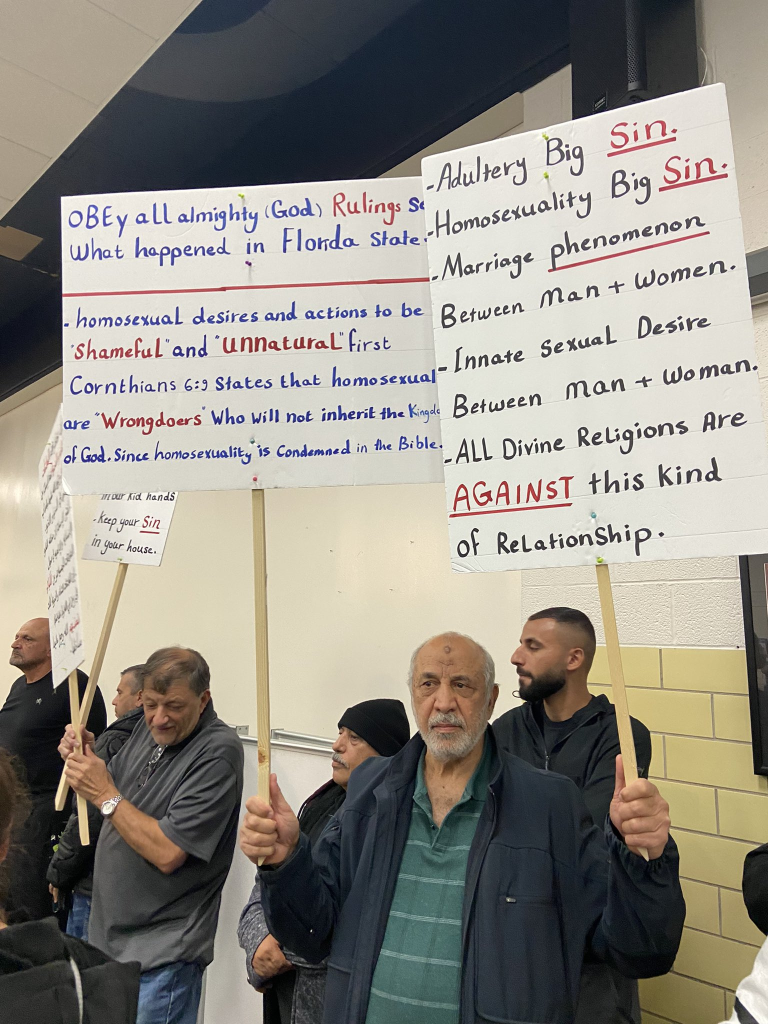 OBEy all almighty (God) Rulings
What happened in Florida State.
- homosexual desires and actions to be
"Shameful" and "unnatural" first
Cornthians 6:9 States that homosexual
are "Wrongdoers" Who will not inherit the
of God. Since homosexuality is Condemned in the Bible.
- Adultery Big Sin.
- Homosexuality Big Sin.
- Marriage phenomenon
Between man + Women.
- Innate Sexual Desire
Between man + Woman.
- ALL Divine Religions Are
AGAINST this kind
of Relationship.
in our kid hands
- Keep your Sin
in your house.